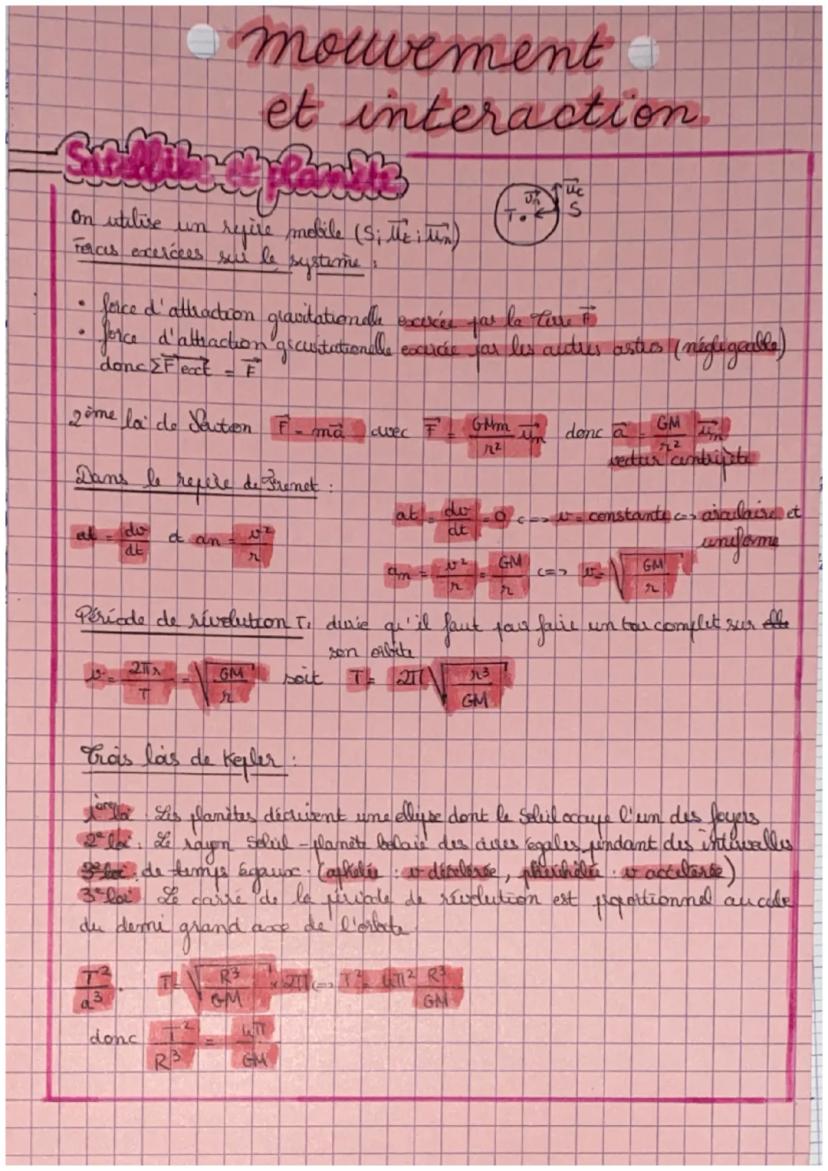 mouvement
et interaction
Satellite et planète
T. S
On utilise un repère mobile (S; u⃗t; u⃗n)
Forces exercées sur le système :
• force d'attraction gravitationnelle exercée par la Terre F⃗
• force d'attraction gravitationnelle exercée par les autres astres (négligeable)
donc ΣF⃗ext = F⃗
2ème loi de Newton F⃗ = ma⃗ avec F⃗ = GMm/r² u⃗n donc a⃗ = GM/r² u⃗n
vecteur centripète
Dans le repère de Frenet :
at = dv/dt et an = v²/r
at = dv/dt = 0 <=> v = constante <=> circulaire et
uniforme
an = v²/r = GM/r <=> v = √(GM/r)
Période de révolution T : durée qu'il faut pour faire un tour complet sur
son orbite
v = 2πr/T = √(GM/r) soit T = 2π√(r³/GM)
Trois lois de Kepler :
1ère loi : Les planètes décrivent une ellipse dont le Soleil occupe l'un des foyers
2e loi : Le rayon Soleil-planète balaie des aires égales pendant des intervalles
3e loi : de temps égaux. (aphélie : v décélérée, : v accélérée)
3e loi Le carré de la période de révolution est proportionnel au cube
du demi grand axe de l'orbite
T²/a³. T = √(R³/GM) × 2π <=> T² = 4π² R³/GM
donc T²/R³ = 4π/GM